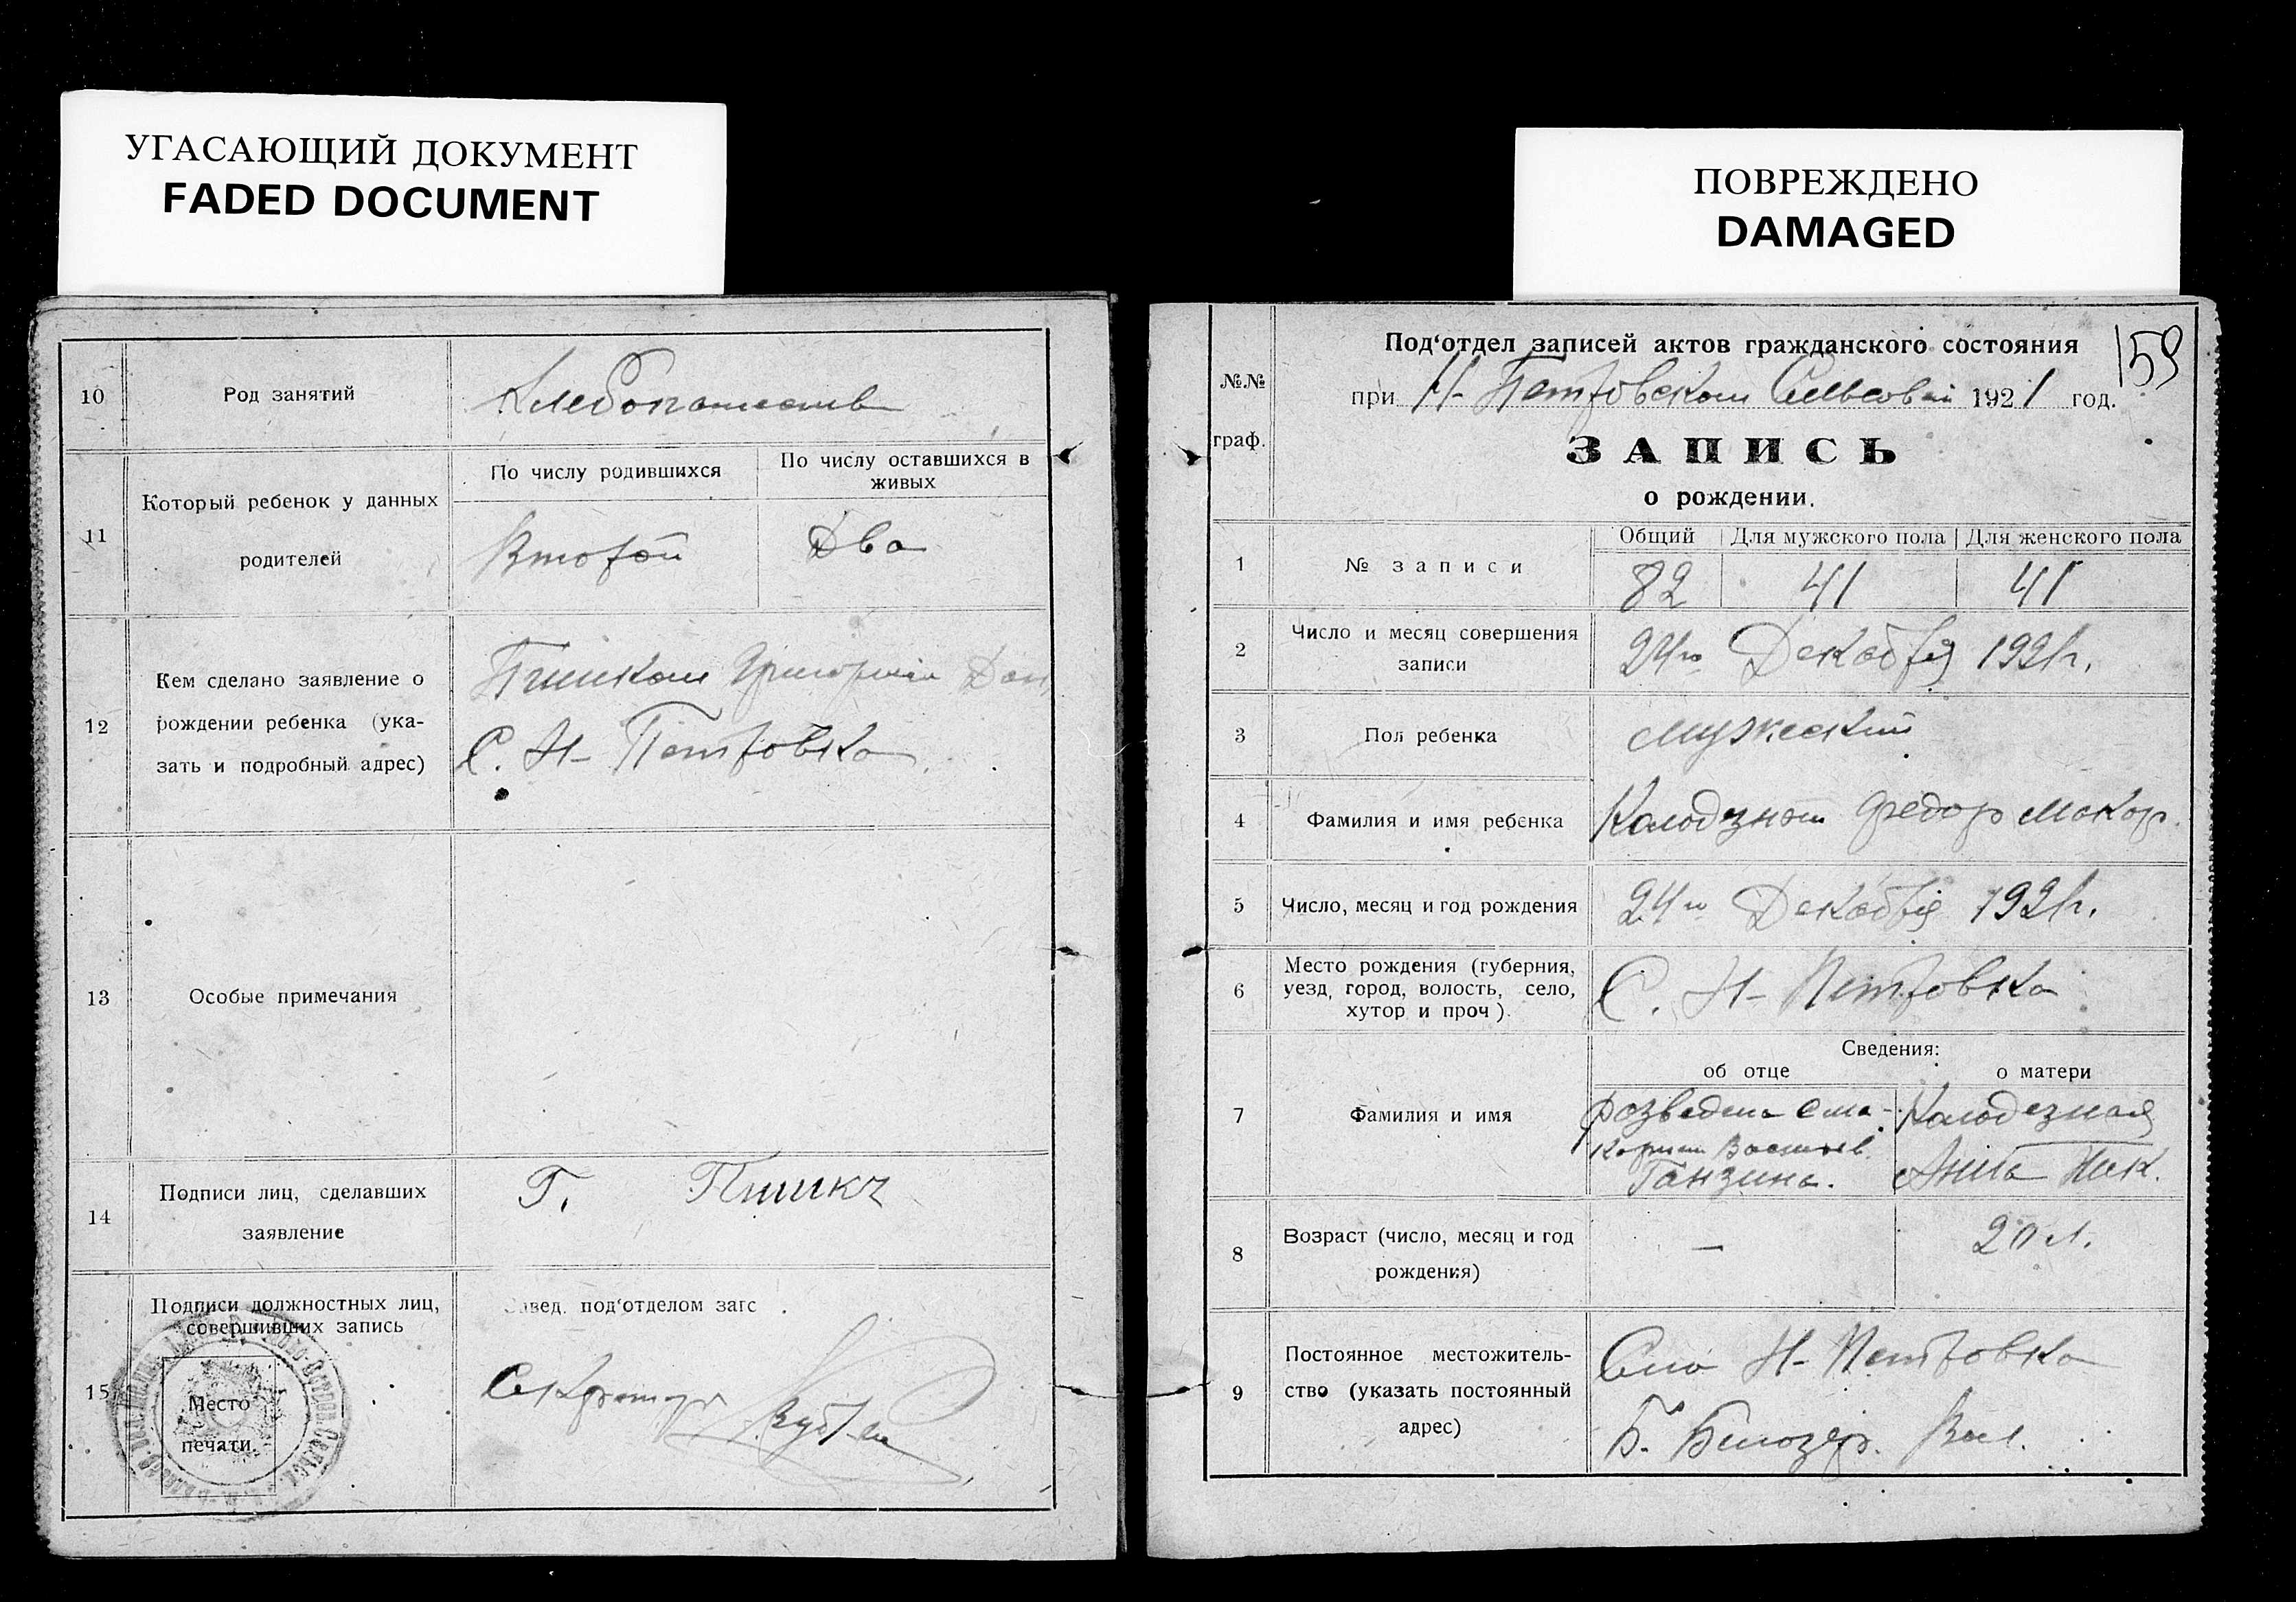 УГАСАЮЩИЙ ДОКУМЕНТ
FADED DOCUMENT
10
Род занятий
Хлебопашеств
11
Который ребенок у данных
родителей
По числу родившихся
По числу оставшихся в
живых
Второй
Два
12
Кем сделано заявление о
рождении ребенка (ука-
зать и подробный адрес)
Григорий
С. Н- Петровка
13
Особые примечания
14
Подписи лиц, сделавших
заявление
Г.
15
Подписи должностных лиц,
совершивших запись
Место
печати
Завед. под‘отделом загс
Секретарь
ПОВРЕЖДЕНО
DAMAGED
159
№№
граф.
Под‘отдел записей актов гражданского состояния
при Н- Петровском Сельсовет 1921 год.
ЗАПИСЬ
о рождении.
1
№ записи
Общий
Для мужского пола
Для женского пола
82
41
41
2
Число и месяц совершения
записи
24го Декабря 1921г.
3
Пол ребенка
Мужеский
4
Фамилия и имя ребенка
Федор Макар.
5
Число, месяц и год рождения
24го Декабря 1921г.
6
Место рождения (губерния,
уезд, город, волость, село,
хутор и проч).
С. Н- Петровка
7
Фамилия и имя
Сведения:
об отце
о матери
Розведена с Ма-
Ганзина.
Колодезная
8
Возраст (число, месяц и год
рождения)
—
20 л.
9
Постоянное местожитель-
ство (указать постоянный
адрес)
Село Н- Петровка
Б. Белозер. Вол.